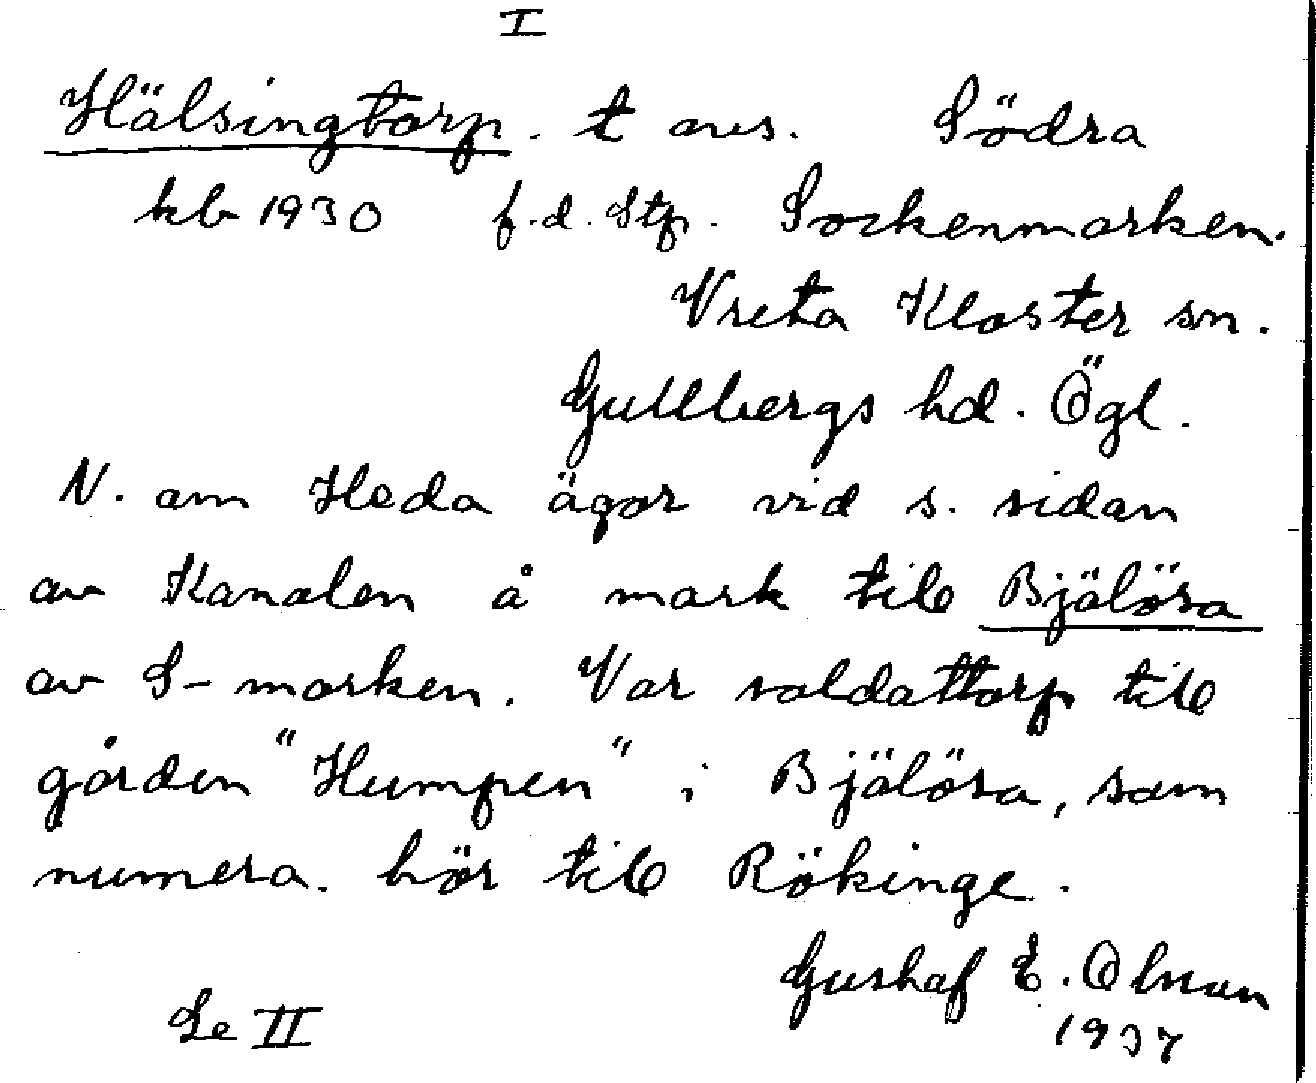 I
Hälsingtorp. t avs. Södra
kb 1930 f.d. Stp. Sockenmarken.
Vreta Kloster sn.
Gullbergs hd. Ögl.
N. om Heda ägor vid s. sidan
av Kanalen å mark till Bjälösa
av S-marken. Var soldattorp till
gården "Humpen" i Bjälösa, som
numera. hör till Rökinge.
Gustaf E. Olsson
1937
Se II